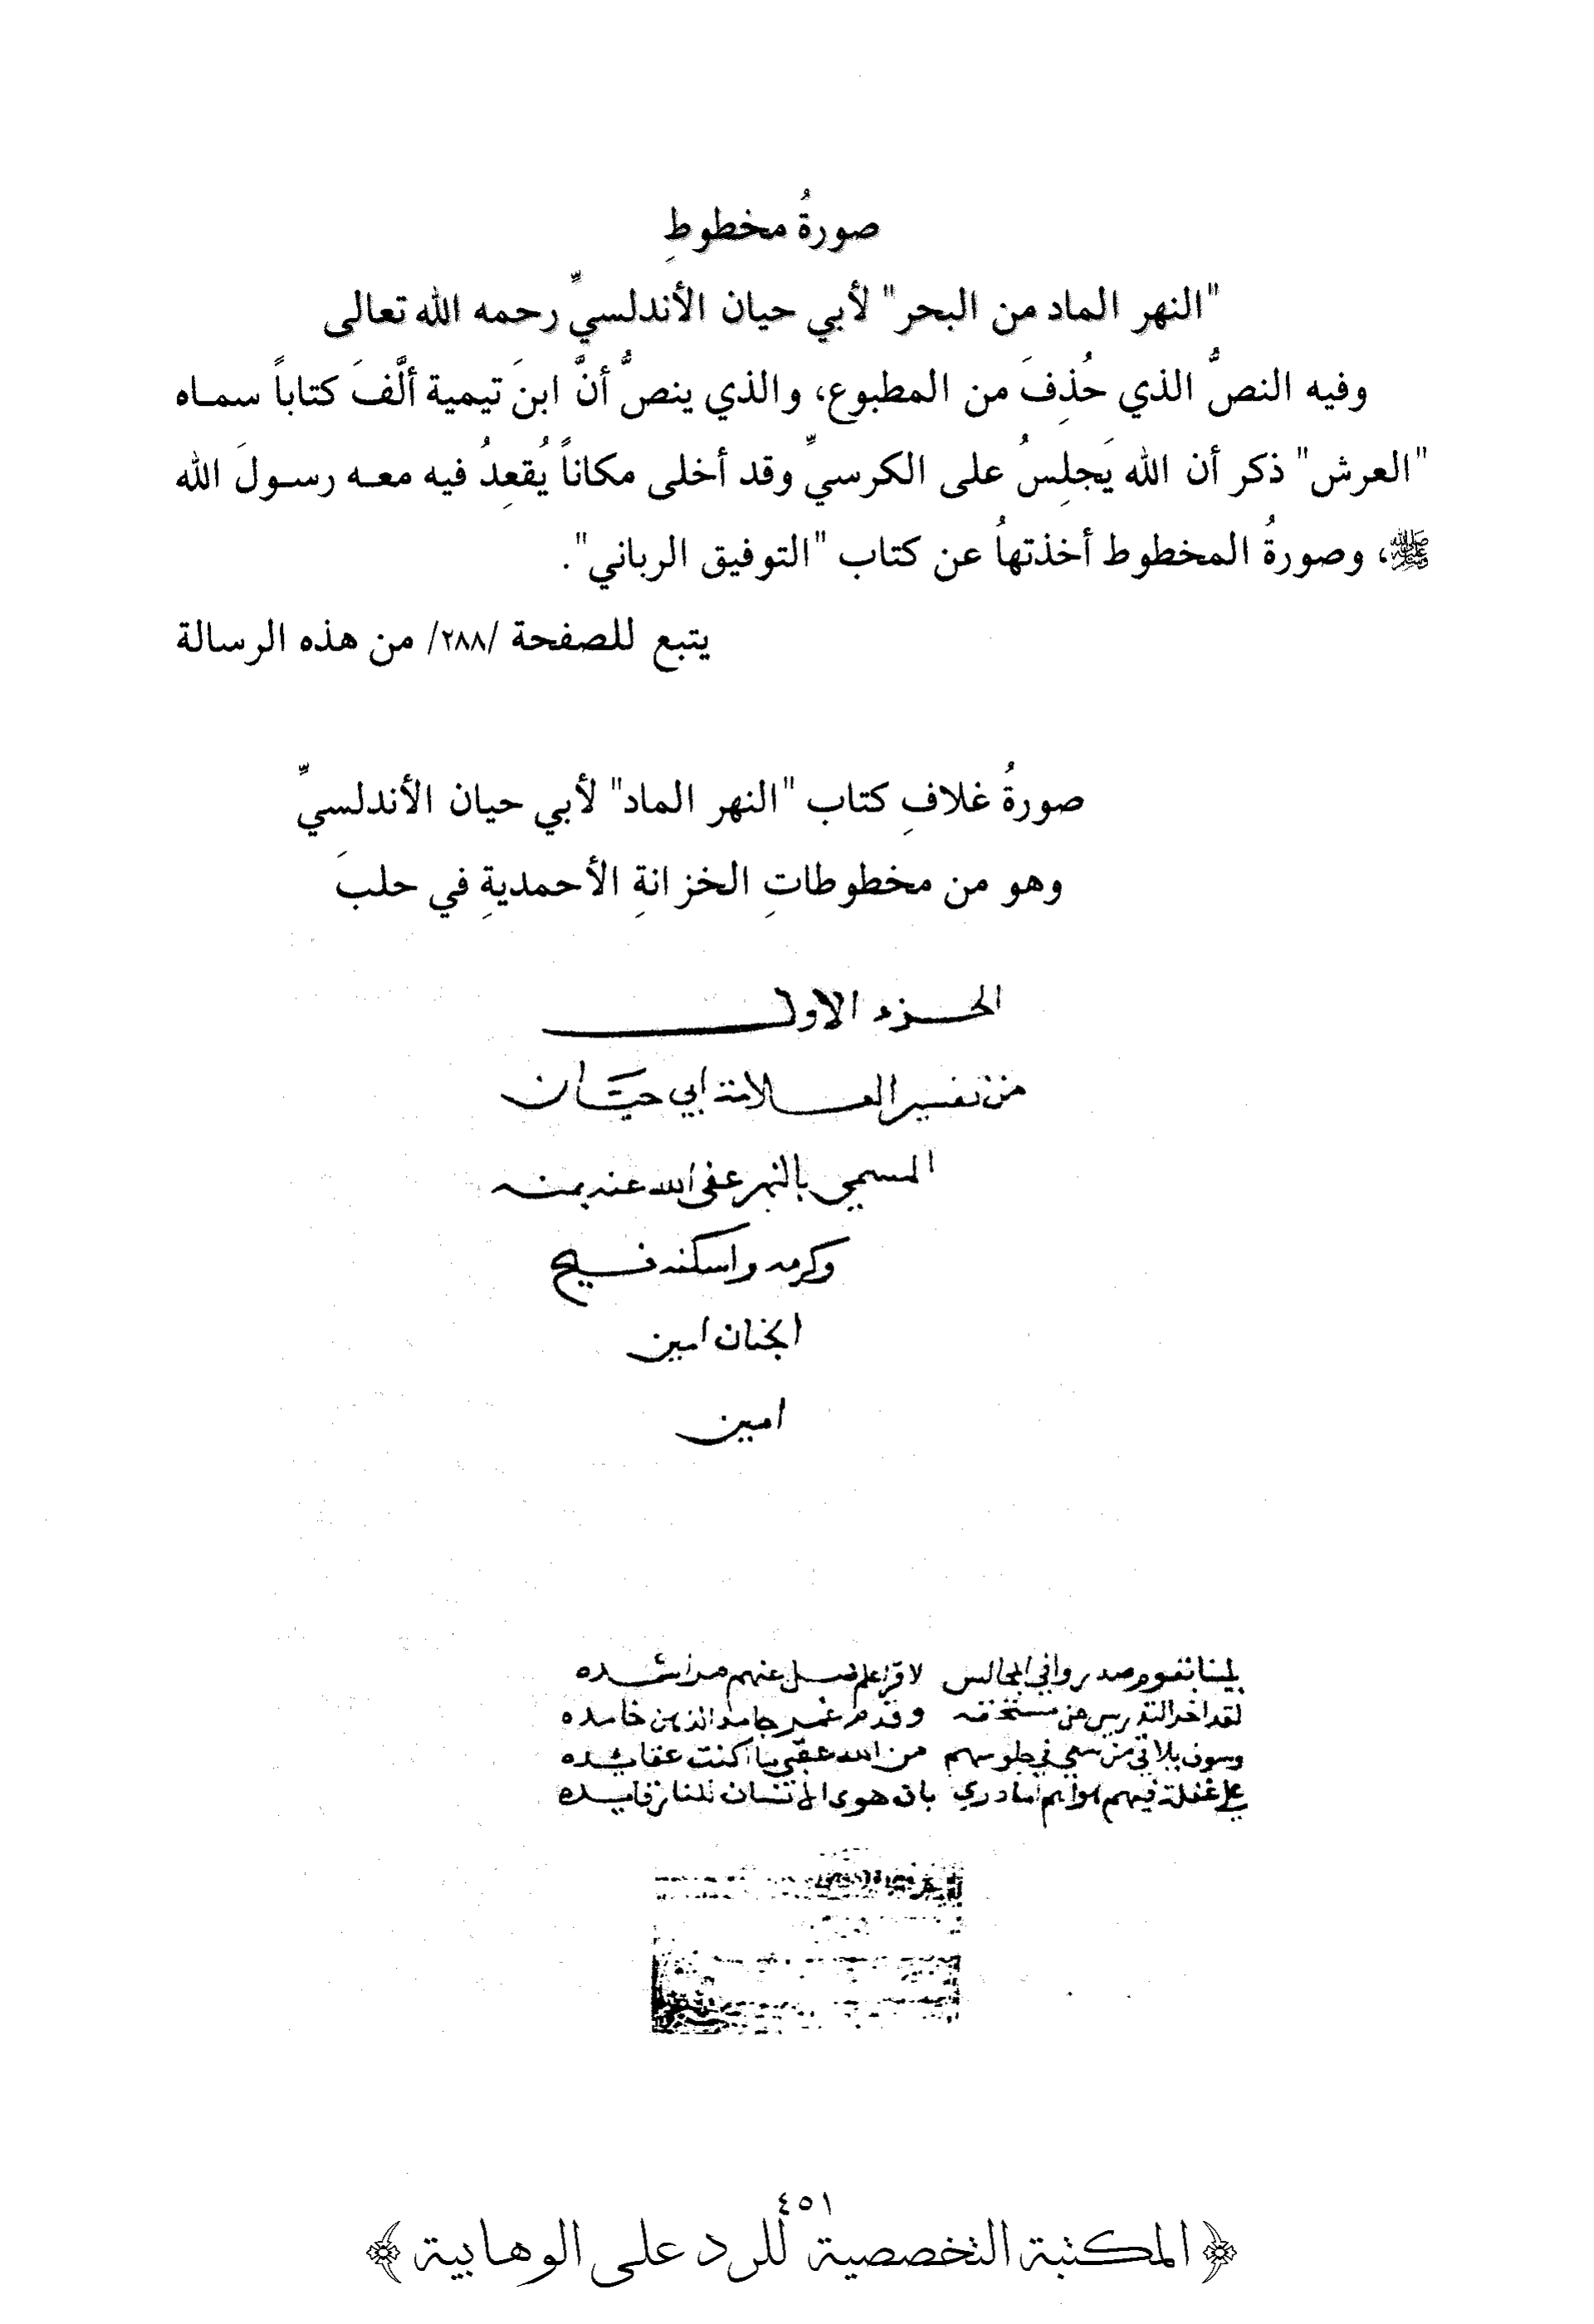 صورةُ مخطوطِ
"النهر الماد من البحر" لأبي حيان الأندلسيِّ رحمه الله تعالى
وفيه النصُّ الذي حُذِفَ من المطبوع، والذي ينصُّ أنَّ ابنَ تيمية ألَّفَ كتاباً سمـاه
"العرش" ذكر أن الله يَجلِسُ على الكرسيِّ وقد أخلى مكاناً يُقعِدُ فيه معـه رسـولَ الله
ﷺ، وصورةُ المخطوط أخذتهاُ عن كتاب "التوفيق الرباني".
يتبع للصفحة /٢٨٨/ من هذه الرسالة
صورةُ غلافِ كتاب "النهر الماد" لأبي حيان الأندلسيِّ
وهو من مخطوطاتِ الخزانةِ الأحمديةِ في حلبَ
الجزء الاول
من تفسير العلامة ابي حيَّان
المسمي بالنهر عفى الله عنه بمنه
وكرمه واسكنه فسيح
الجنان امين
امين
بلينا بقوم صدروا في المجالس لاقرا علم عنهم
لقد اخر التدريس عن مستحقه وقدم غمر جامد الذهن خامده
وسوف يلاقي من سعي في جلوسهم من الله عقبي ما اكنت عقائده
علي فيهم اما دري بان هوى الانسان للنار قايده
٤٥١
﴿ المكتبة التخصصية للرد على الوهابية ﴾